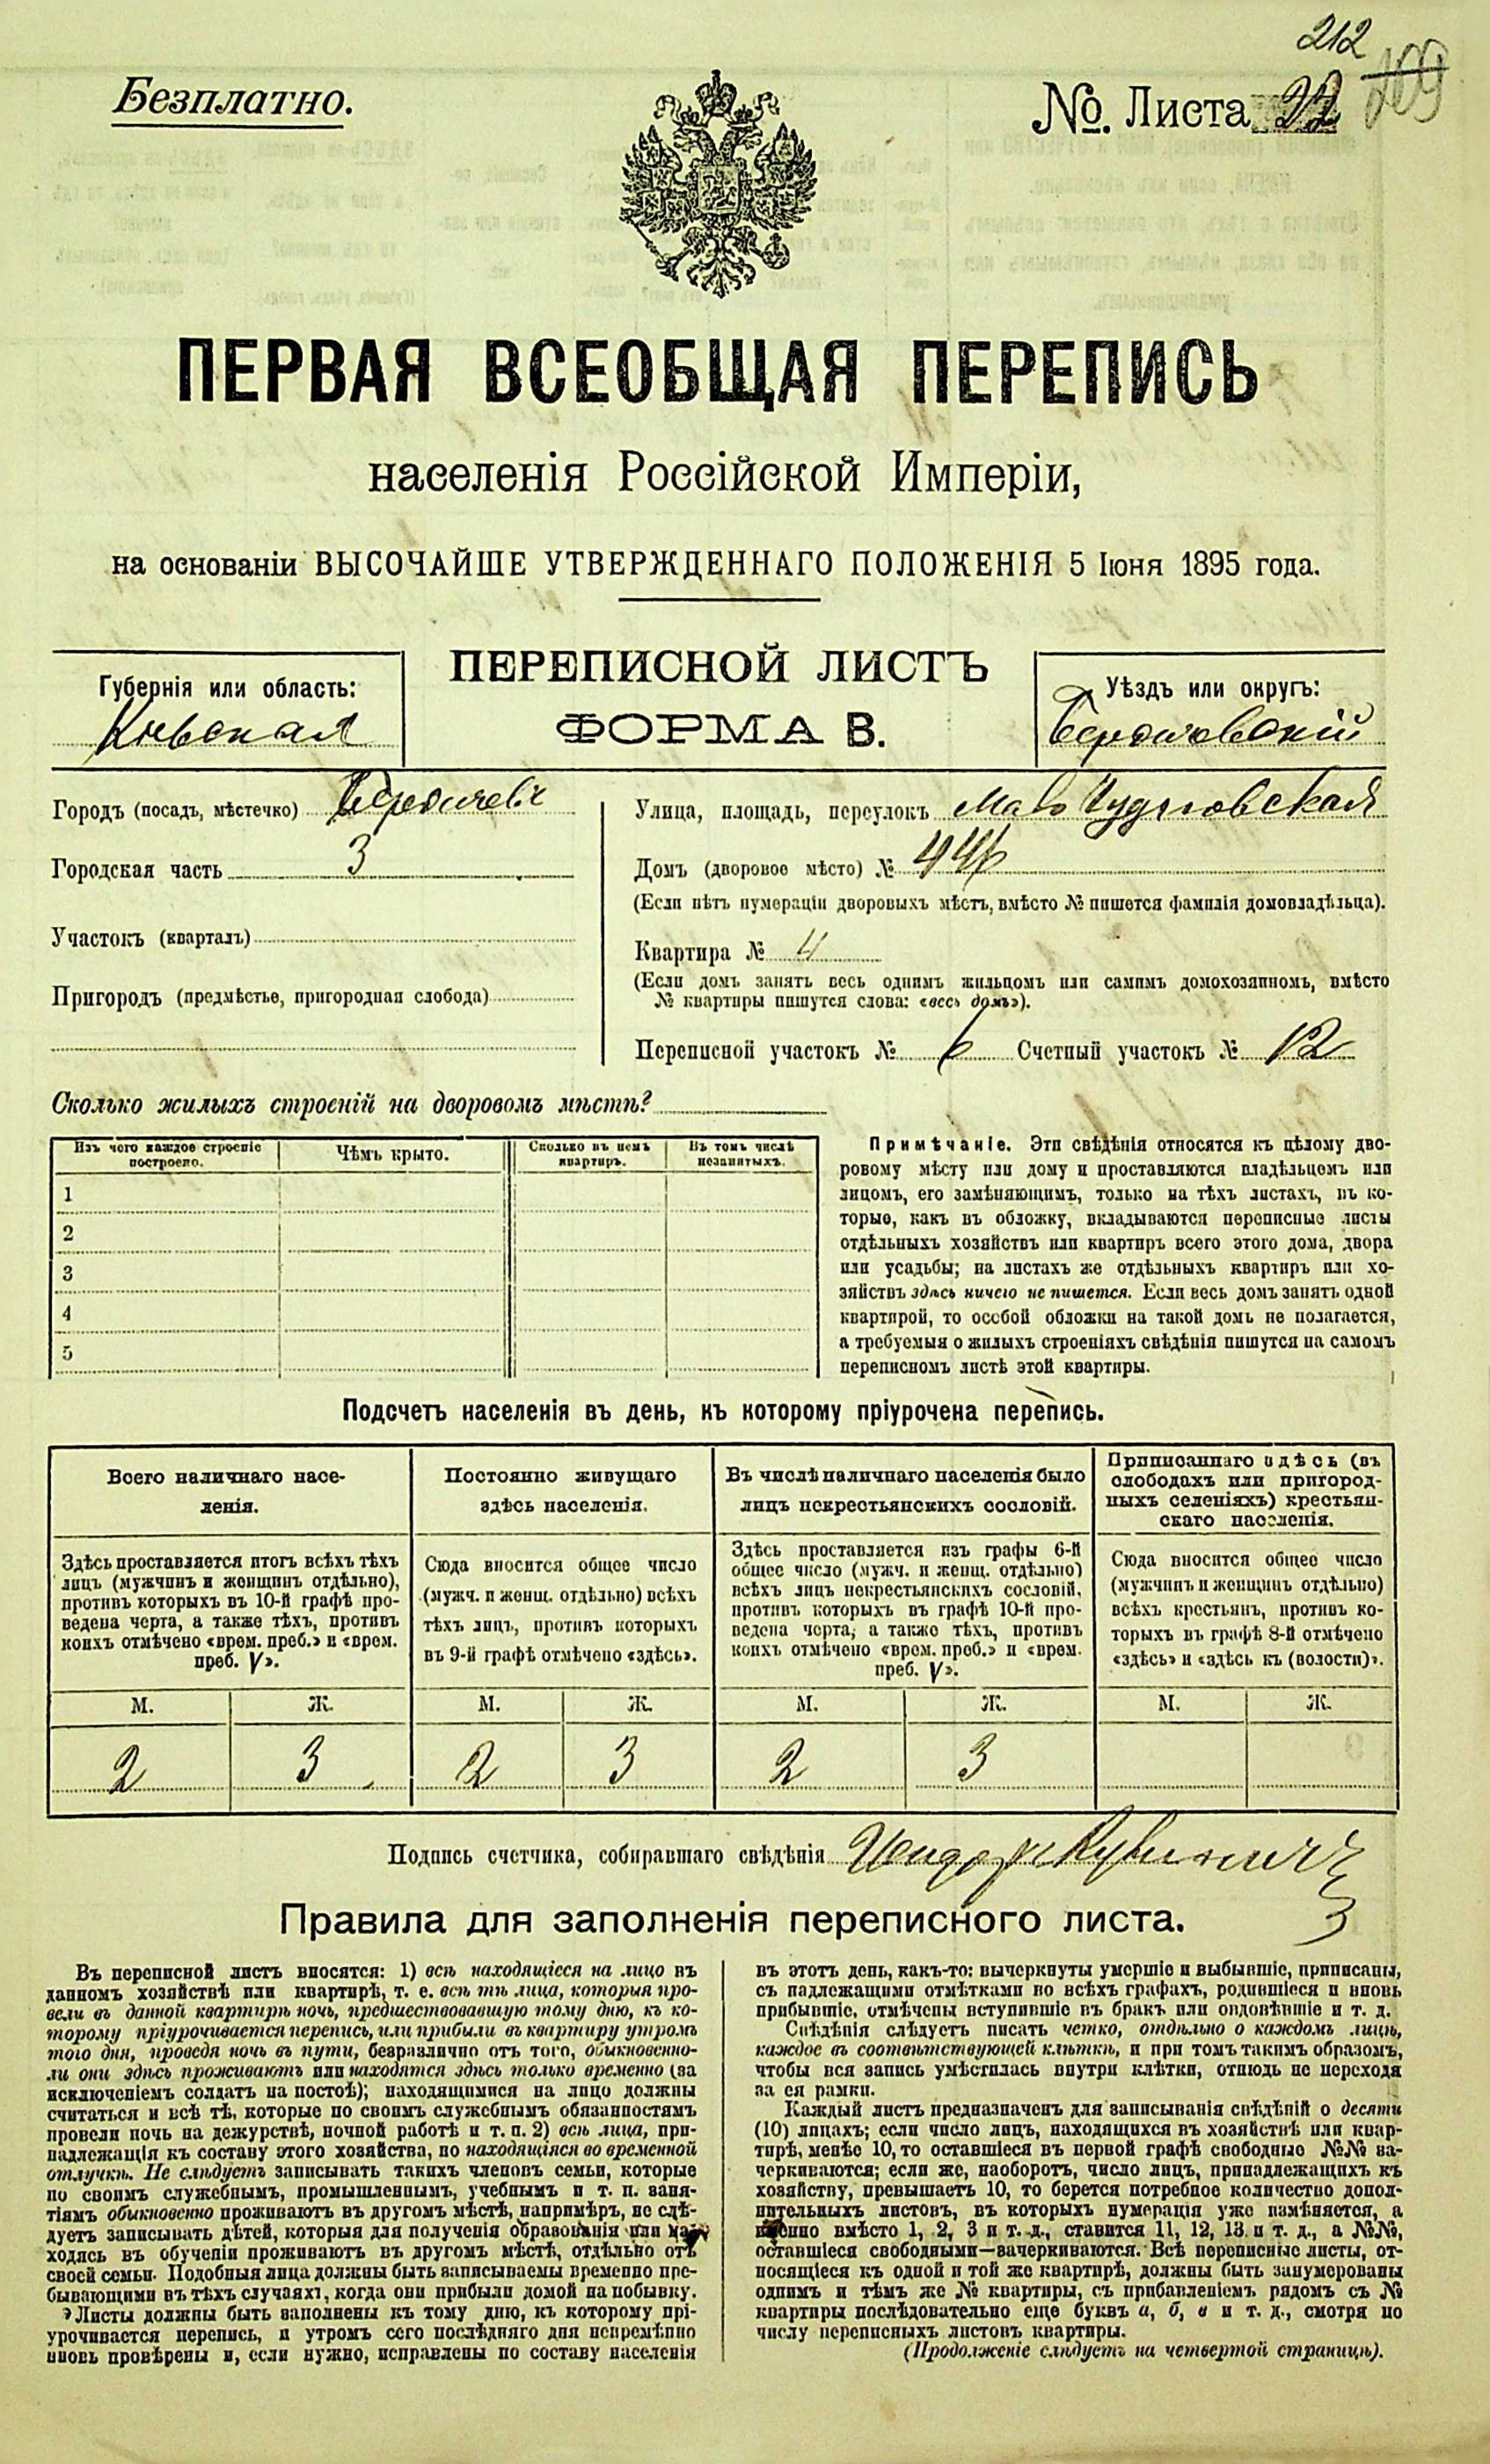 212
Безплатно.
№. Листа 22 109
ПЕРВАЯ ВСЕОБЩАЯ ПЕРЕПИСЬ
населенія Россійской Имперіи,
на основаніи ВЫСОЧАЙШЕ УТВЕРЖДЕННАГО ПОЛОЖЕНІЯ 5 Іюня 1895 года.
ПЕРЕПИСНОЙ ЛИСТЪ
ФОРМА В.
Губернія или область:
Кіевская
Уѣздъ или округъ:
Бердичевскій
Городъ (посадъ, мѣстечко) Бердичевъ
Городская часть 3
Участокъ (кварталъ)
Пригородъ (предмѣстье, пригородная слобода)
Улица, площадь, переулокъ Мало Чудновская
Домъ (дворовое мѣсто) № 446
(Если нѣтъ нумераціи дворовыхъ мѣстъ, вмѣсто № пишется фамилія домовладѣльца).
Квартира № 4
(Если домъ занятъ весь однимъ жильцомъ или самимъ домохозяиномъ, вмѣсто
№ квартиры пишутся слова: «весь домъ»).
Переписной участокъ № 6 Счетный участокъ № 12
Сколько жилыхъ строеній на дворовомъ мѣстѣ?
Изъ чего каждое строеніе
построено.
Чѣмъ крыто.
Сколько въ немъ
квартиръ.
Въ томъ числѣ
незанятыхъ.
1
2
3
4
5
Примѣчаніе. Эти свѣдѣнія относятся къ цѣлому дво-
ровому мѣсту или дому и проставляются владѣльцемъ или
лицомъ, его замѣняющимъ, только на тѣхъ листахъ, въ ко-
торые, какъ въ обложку, вкладываются переписные листы
отдѣльныхъ хозяйствъ или квартиръ всего этого дома, двора
или усадьбы; на листахъ же отдѣльныхъ квартиръ или хо-
зяйствъ здѣсь ничего не пишется. Если весь домъ занятъ одной
квартирой, то особой обложки на такой домъ не полагается,
а требуемыя о жилыхъ строеніяхъ свѣдѣнія пишутся на самомъ
переписномъ листѣ этой квартиры.
Подсчетъ населенія въ день, къ которому пріурочена перепись.
Всего наличнаго насе-
ленія.
Здѣсь проставляется итогъ всѣхъ тѣхъ
лицъ (мужчинъ и женщинъ отдѣльно),
противъ которыхъ въ 10-й графѣ про-
ведена черта, а также тѣхъ, противъ
коихъ отмѣчено «врем. преб.» и «врем.
преб. V».
Постоянно живущаго
здѣсь населенія.
Сюда вносится общее число
(мужч. и женщ. отдѣльно) всѣхъ
тѣхъ лицъ, противъ которыхъ
въ 9-й графѣ отмѣчено «здѣсь».
Въ числѣ наличнаго населенія было
лицъ некрестьянскихъ сословій.
Здѣсь проставляется изъ графы 6-й
общее число (мужч. и женщ. отдѣльно)
всѣхъ лицъ некрестьянскихъ сословій,
противъ которыхъ въ графѣ 10-й про-
ведена черта, а также тѣхъ, противъ
коихъ отмѣчено «врем. преб.» и «врем.
преб. V».
Приписаннаго здѣсь (въ
слободахъ или пригород-
ныхъ селеніяхъ) крестьян-
скаго населенія.
Сюда вносится общее число
(мужчинъ и женщинъ отдѣльно)
всѣхъ крестьянъ, противъ ко-
торыхъ въ графѣ 8-й отмѣчено
«здѣсь» и «здѣсь къ (волости)».
М. Ж. М. Ж. М. Ж. М. Ж.
2 3 2 3 2 3
Подпись счетчика, собиравшаго свѣдѣнія
Правила для заполненія переписного листа.
Въ переписной листъ вносятся: 1) всѣ находящіеся на лицо въ
данномъ хозяйствѣ или квартирѣ, т. е. всѣ тѣ лица, которыя про-
вели въ данной квартирѣ ночь, предшествовавшую тому дню, къ ко-
торому пріурочивается перепись, или прибыли въ квартиру утромъ
того дня, проведя ночь въ пути, безразлично отъ того, обыкновенно-
ли они здѣсь проживаютъ или находятся здѣсь только временно (за
исключеніемъ солдатъ на постоѣ); находящимися на лицо должны
считаться и всѣ тѣ, которые по своимъ служебнымъ обязанностямъ
провели ночь на дежурствѣ, ночной работѣ и т. п. 2) всѣ лица, при-
надлежащія къ составу этого хозяйства, но находящіяся во временной
отлучкѣ. Не слѣдуетъ записывать такихъ членовъ семьи, которые
по своимъ служебнымъ, промышленнымъ, учебнымъ и т. п. заня-
тіямъ обыкновенно проживаютъ въ другомъ мѣстѣ, напримѣръ, не слѣ-
дуетъ записывать дѣтей, которыя для полученія образованія или на-
ходясь въ обученіи проживаютъ въ другомъ мѣстѣ, отдѣльно отъ
своей семьи. Подобныя лица должны быть записываемы временно пре-
бывающими въ тѣхъ случаяхъ, когда они прибыли домой на побывку.
Листы должны быть заполнены къ тому дню, къ которому прі-
урочивается перепись, и утромъ сего послѣдняго дня непремѣнно
вновь провѣрены и, если нужно, исправлены по составу населенія
въ этотъ день, какъ-то: вычеркнуты умершіе и выбывшіе, приписаны,
съ надлежащими отмѣтками во всѣхъ графахъ, родившіеся и вновь
прибывшіе, отмѣчены вступившіе въ бракъ или овдовѣвшіе и т. д.
Свѣдѣнія слѣдуетъ писать четко, отдѣльно о каждомъ лицѣ,
каждое въ соотвѣтствующей клѣткѣ, и при томъ такимъ образомъ,
чтобы вся запись умѣстилась внутри клѣтки, отнюдь не переходя
за ея рамки.
Каждый листъ предназначенъ для записыванія свѣдѣній о десяти
(10) лицахъ; если число лицъ, находящихся въ хозяйствѣ или квар-
тирѣ, менѣе 10, то оставшіеся въ первой графѣ свободные №№ за-
черкиваются; если же, наоборотъ, число лицъ, принадлежащихъ къ
хозяйству, превышаетъ 10, то берется потребное количество допол-
нительныхъ листовъ, въ которыхъ нумерація уже измѣняется, а
именно вмѣсто 1, 2, 3 и т. д., ставится 11, 12, 13 и т. д., а №№,
оставшіеся свободными—зачеркиваются. Всѣ переписные листы, от-
носящіеся къ одной и той же квартирѣ, должны быть занумерованы
однимъ и тѣмъ же № квартиры, съ прибавленіемъ рядомъ съ №
квартиры послѣдовательно еще буквъ а, б, в и т. д., смотря по
числу переписныхъ листовъ квартиры.
(Продолженіе слѣдуетъ на четвертой страницѣ).